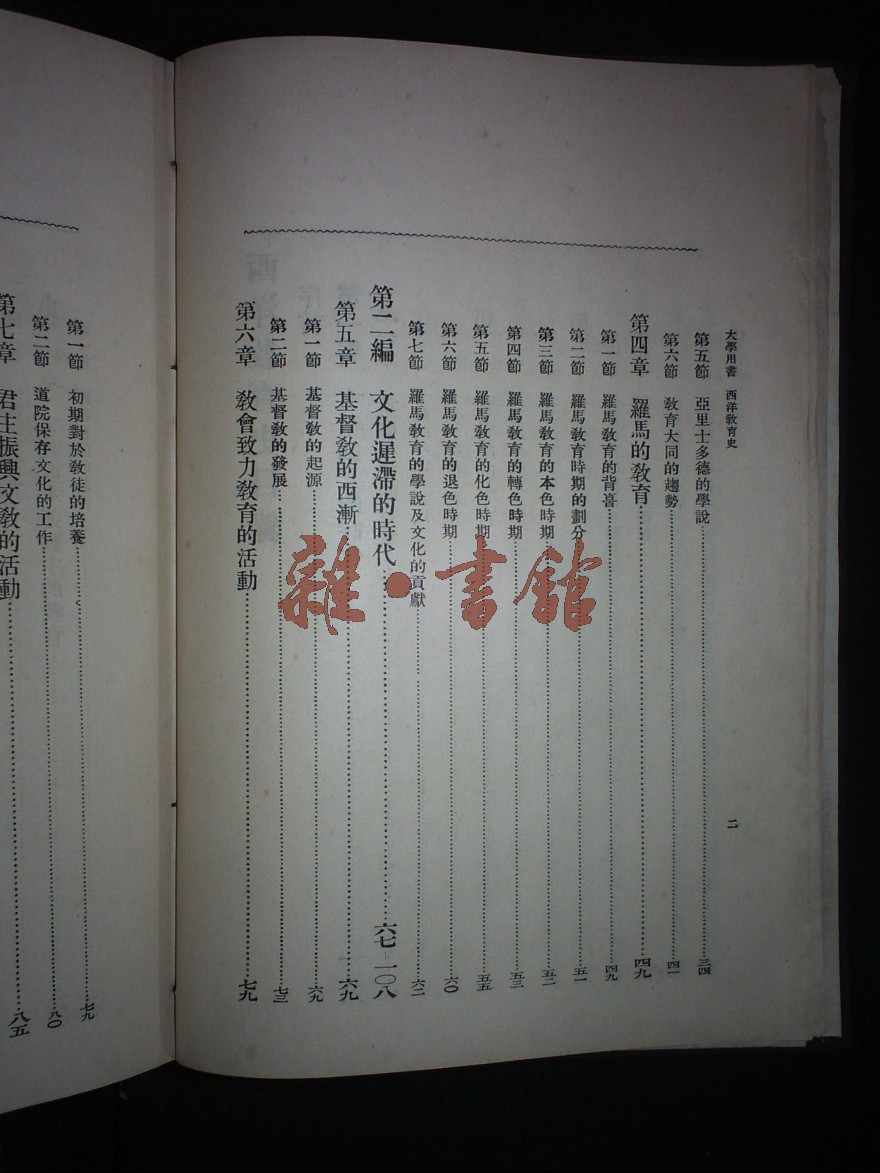 大學用書 西洋教育史 二
第五節 亞里士多德的學說 三四
第六節 教育大同的趨勢 四一
第四章 羅馬的教育 四九
第一節 羅馬教育的背㫭 四九
第二節 羅馬教育時期的劃分 五一
第三節 羅馬教育的本色時期 五二
第四節 羅馬教育的轉色時期 五三
第五節 羅馬教育的化色時期 五五
第六節 羅馬教育的退色時期 六〇
第七節 羅馬教育的學說及文化的貢獻 六二
第二編 文化遲滯的時代 六七—一〇八
第五章 基督教的西漸 六九
第一節 基督教的起源 六九
第二節 基督教的發展 七三
第六章 教會致力教育的活動 七九
第一節 初期對於教徒的培養 七九
第二節 道院保存文化的工作 八〇
第七章 君主振興文教的活動 八五
雜·書館